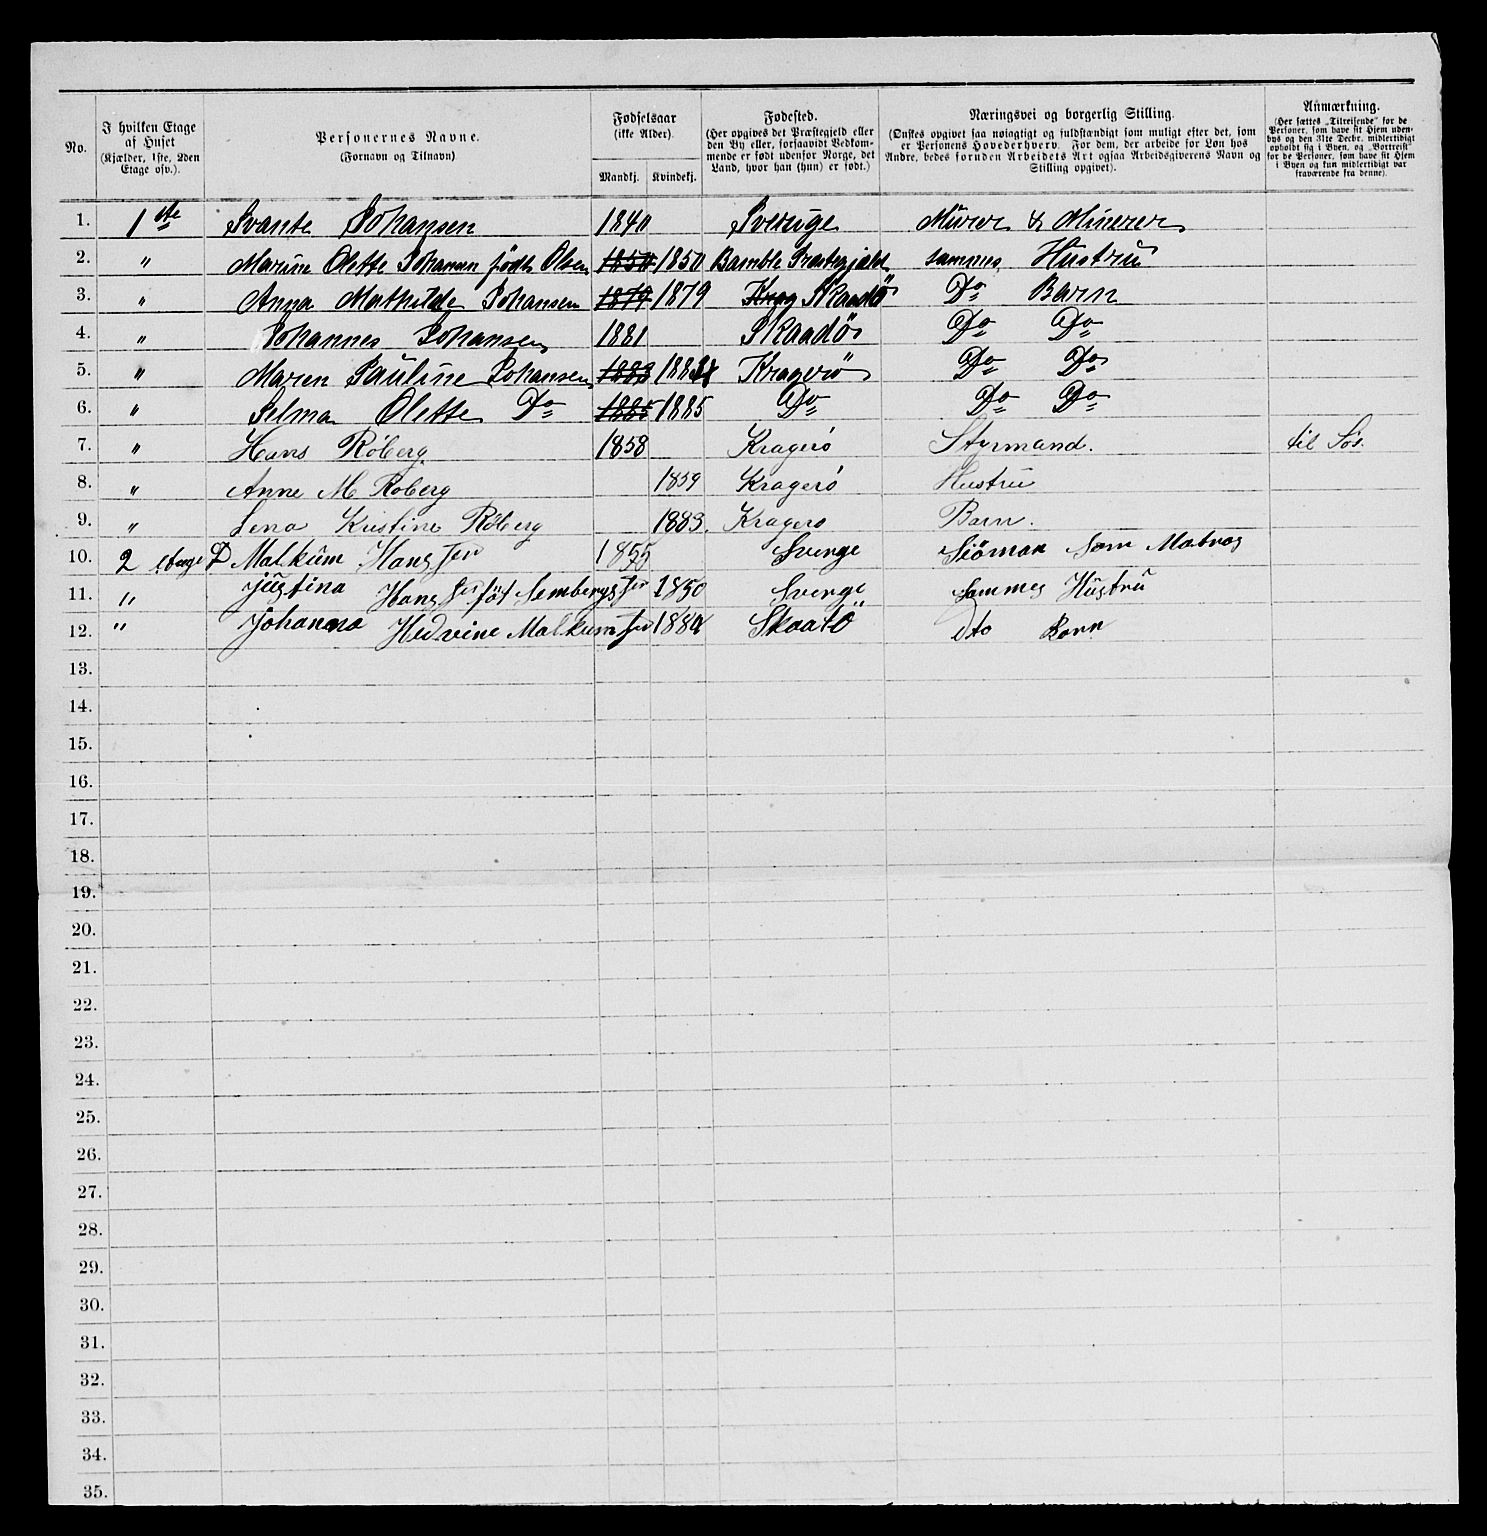 No. I hvilken Etage af Huset (Kjælder, 1ste, 2den Etage osv.). Personernes Navne. (Fornavn og Tilnavn) Fødselsaar (ikke Alder). Mandkj. Kvindekj. Fødested. (Her opgives det Præstegjeld eller den By eller, forsaavidt Vedkommende er født udenfor Norge, det Land, hvor han (hun) er født.) Næringsvei og borgerlig Stilling. (Ønskes opgivet saa nøiagtigt og fuldstændigt som muligt efter det, som er Personens Hovederhverv. For dem, der arbeide for Løn hos Andre, bedes foruden Arbeidets Art ogsaa Arbeidsgiverens Navn og Stilling opgivet). Anmærkning. (Her sættes „Tilreisende" for de Personer, som have sit Hjem udenbys og den 31te Decbr. midlertidigt opholdt sig i Byen, og „Bortreist" for de Personer, som have sit Hjem i Byen og kun midlertidigt var fraværende fra denne).
1. 1ste Svante Johansen 1840 Sverige Murer & Minerer
2. " Marine Olette Johansen født Olsen 1850 1850 Bamble Præstegjeld sammes Hustru
3. " Anna Mathilde Johansen 1879 1879 Krag Skaadö Do Barn
4. " Johannes Johansen 1881 Skaadö Do Do
5. " Maren Pauline Johansen 1883 Kragerö Do Do
6. " Selma Olette Do 1885 1885 Do Do Do
7. " Hans Röberg 1858 Kragerö Styrmand. til Søs.
8. " Anne M Roberg 1859 Kragerö Hustru
9. " Lena Kristine Röberg 1883. Kragero Barn.
10. 2 etage Malkum HansSen 1855 Sverge Siöman Som Matros
11. " justina HansSen föt SembergsSen 1850 Sverge Sammes Hustru
12. " Johanna Hedvine MalkumSen 1884 Skaatö dto Barn
13.
14.
15.
16.
17.
18.
19.
20.
21.
22.
23.
24.
25.
26.
27.
28.
29.
30.
31.
32.
33.
34.
35.